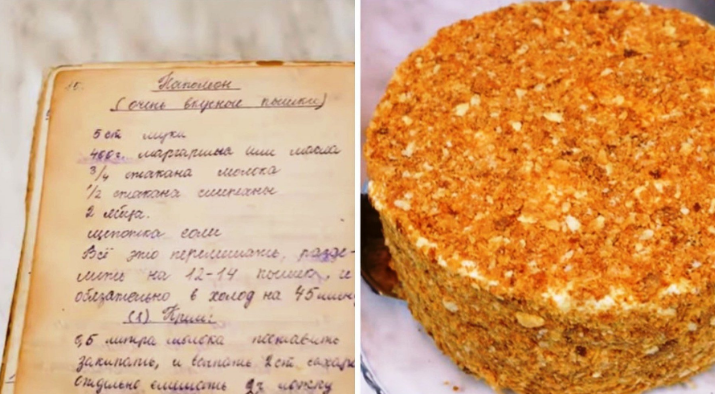 15.
Наполеон
(очень вкусные пышки)
5 ст муки
400 г. маргарина или масла
3/4 стакана молока
1/2 стакана сметаны
2 яйца.
щепотка соли
Всё это перемешать, разде-
лить на 12-14 пышек, и
обязательно в холод на 45 мин
(1) Крем:
0,5 литра молока поставить
закипать, и всыпать 2 ст сахара
Отдельно смешать 2 ложки